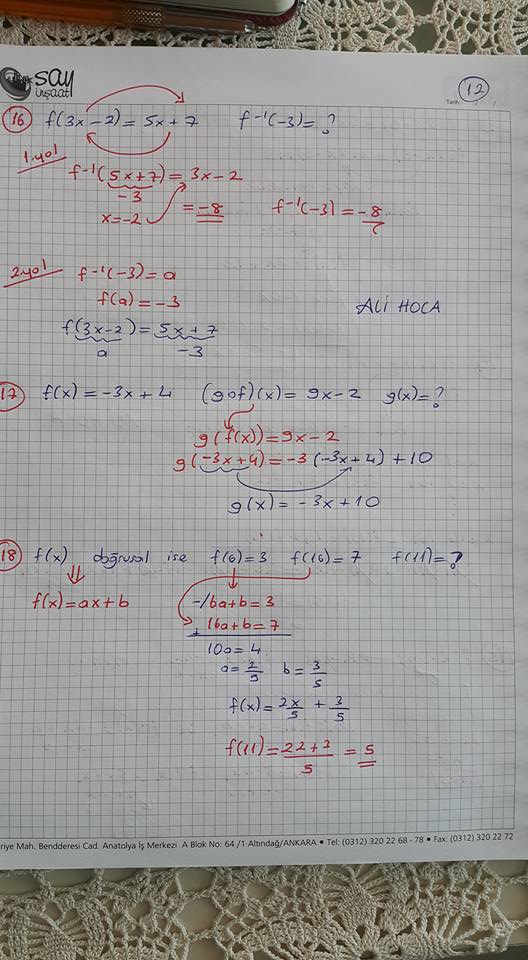 say
inşaat
12
Tarih: / /
16 f(3x-2)=5x+7 f⁻¹(-3)=?
1.yol
f⁻¹(5x+7)=3x-2
-3
x=-2 =-8 f⁻¹(-3)=-8
2.yol f⁻¹(-3)=a
f(a)=-3
f(3x-2)=5x+7
a -3
ALİ HOCA
17 f(x)=-3x+4 (gof)(x)=9x-2 g(x)=?
g(f(x))=9x-2
g(-3x+4)=-3(-3x+4)+10
g(x)=-3x+10
18 f(x) doğrusal ise f(6)=3 f(16)=7 f(11)=?
f(x)=ax+b
-/6a+b=3
+ 16a+b=7
10a=4
a=2/5 b=3/5
f(x)=2x/5+3/5
f(11)=22+3/5=5
riye Mah. Bendderesi Cad. Anatolya İş Merkezi A Blok No: 64 /1 Altındağ/ANKARA • Tel: (0312) 320 22 68 - 78 • Fax: (0312) 320 22 72